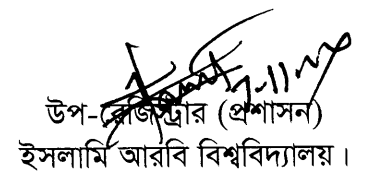 উপ-রেজিস্ট্রার (প্রশাসন)
ইসলামি আরবি বিশ্ববিদ্যালয়।